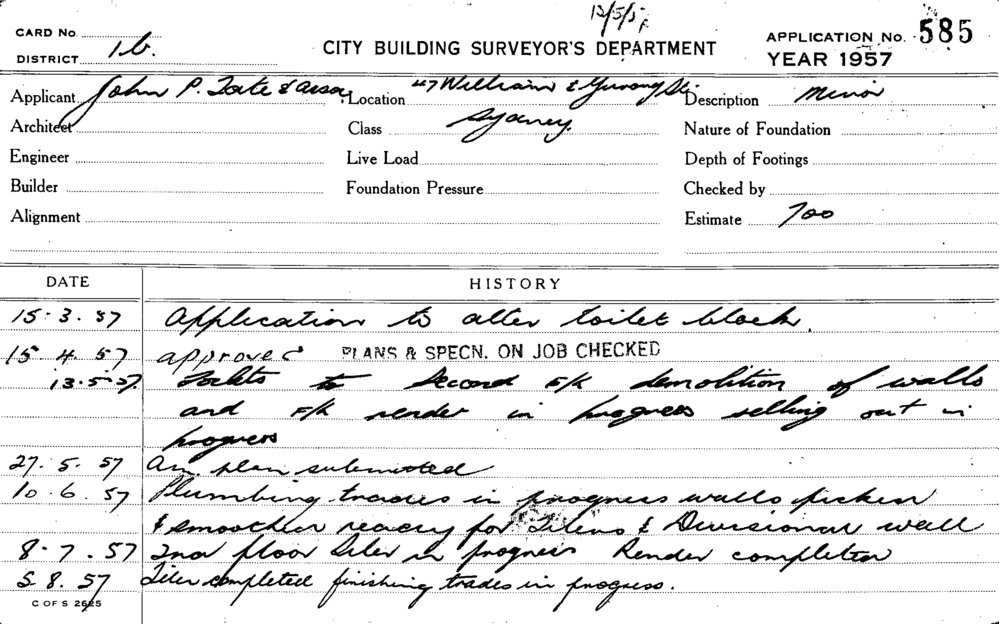 12/5/57
CARD No.
DISTRICT 1b.
CITY BUILDING SURVEYOR'S DEPARTMENT
APPLICATION No. 585
YEAR 1957
Applicant John P. Tate & Assoc. Location 47 William & Yurong St. Description Minor
Architect Class Sydney. Nature of Foundation
Engineer Live Load Depth of Footings
Builder Foundation Pressure Checked by
Alignment Estimate 700
DATE HISTORY
15.3.57 Application to alter toilet block.
15 4. 57 approved PLANS & SPECN. ON JOB CHECKED
13.5.57 to second F/R demolition of walls
and F/R render in progress setting out in
progress
27. 5. 57 Am. plan submitted
10. 6. 57 Plumbing trades in progress walls
& ready for Tilers & Divisional wall
8. 7. 57 2nd floor tiler in progress Render completed
5. 8. 57 Tiler completed finishing trades in progress.
C OF S 2625